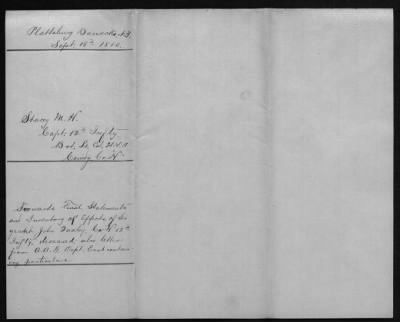 Plattsburg Barracks, N.Y.
Sept. 18th 1880.
Stacey M. H.
Capt. 12th Infty
Bvt. Lt. Col. U.S.A.
Comdg Co. H.
Forwards Final Statements
and Inventory of Effects of
John Co. H 12th
Infty, deceased, also letter
from A. A. G. Dept. East
particulars